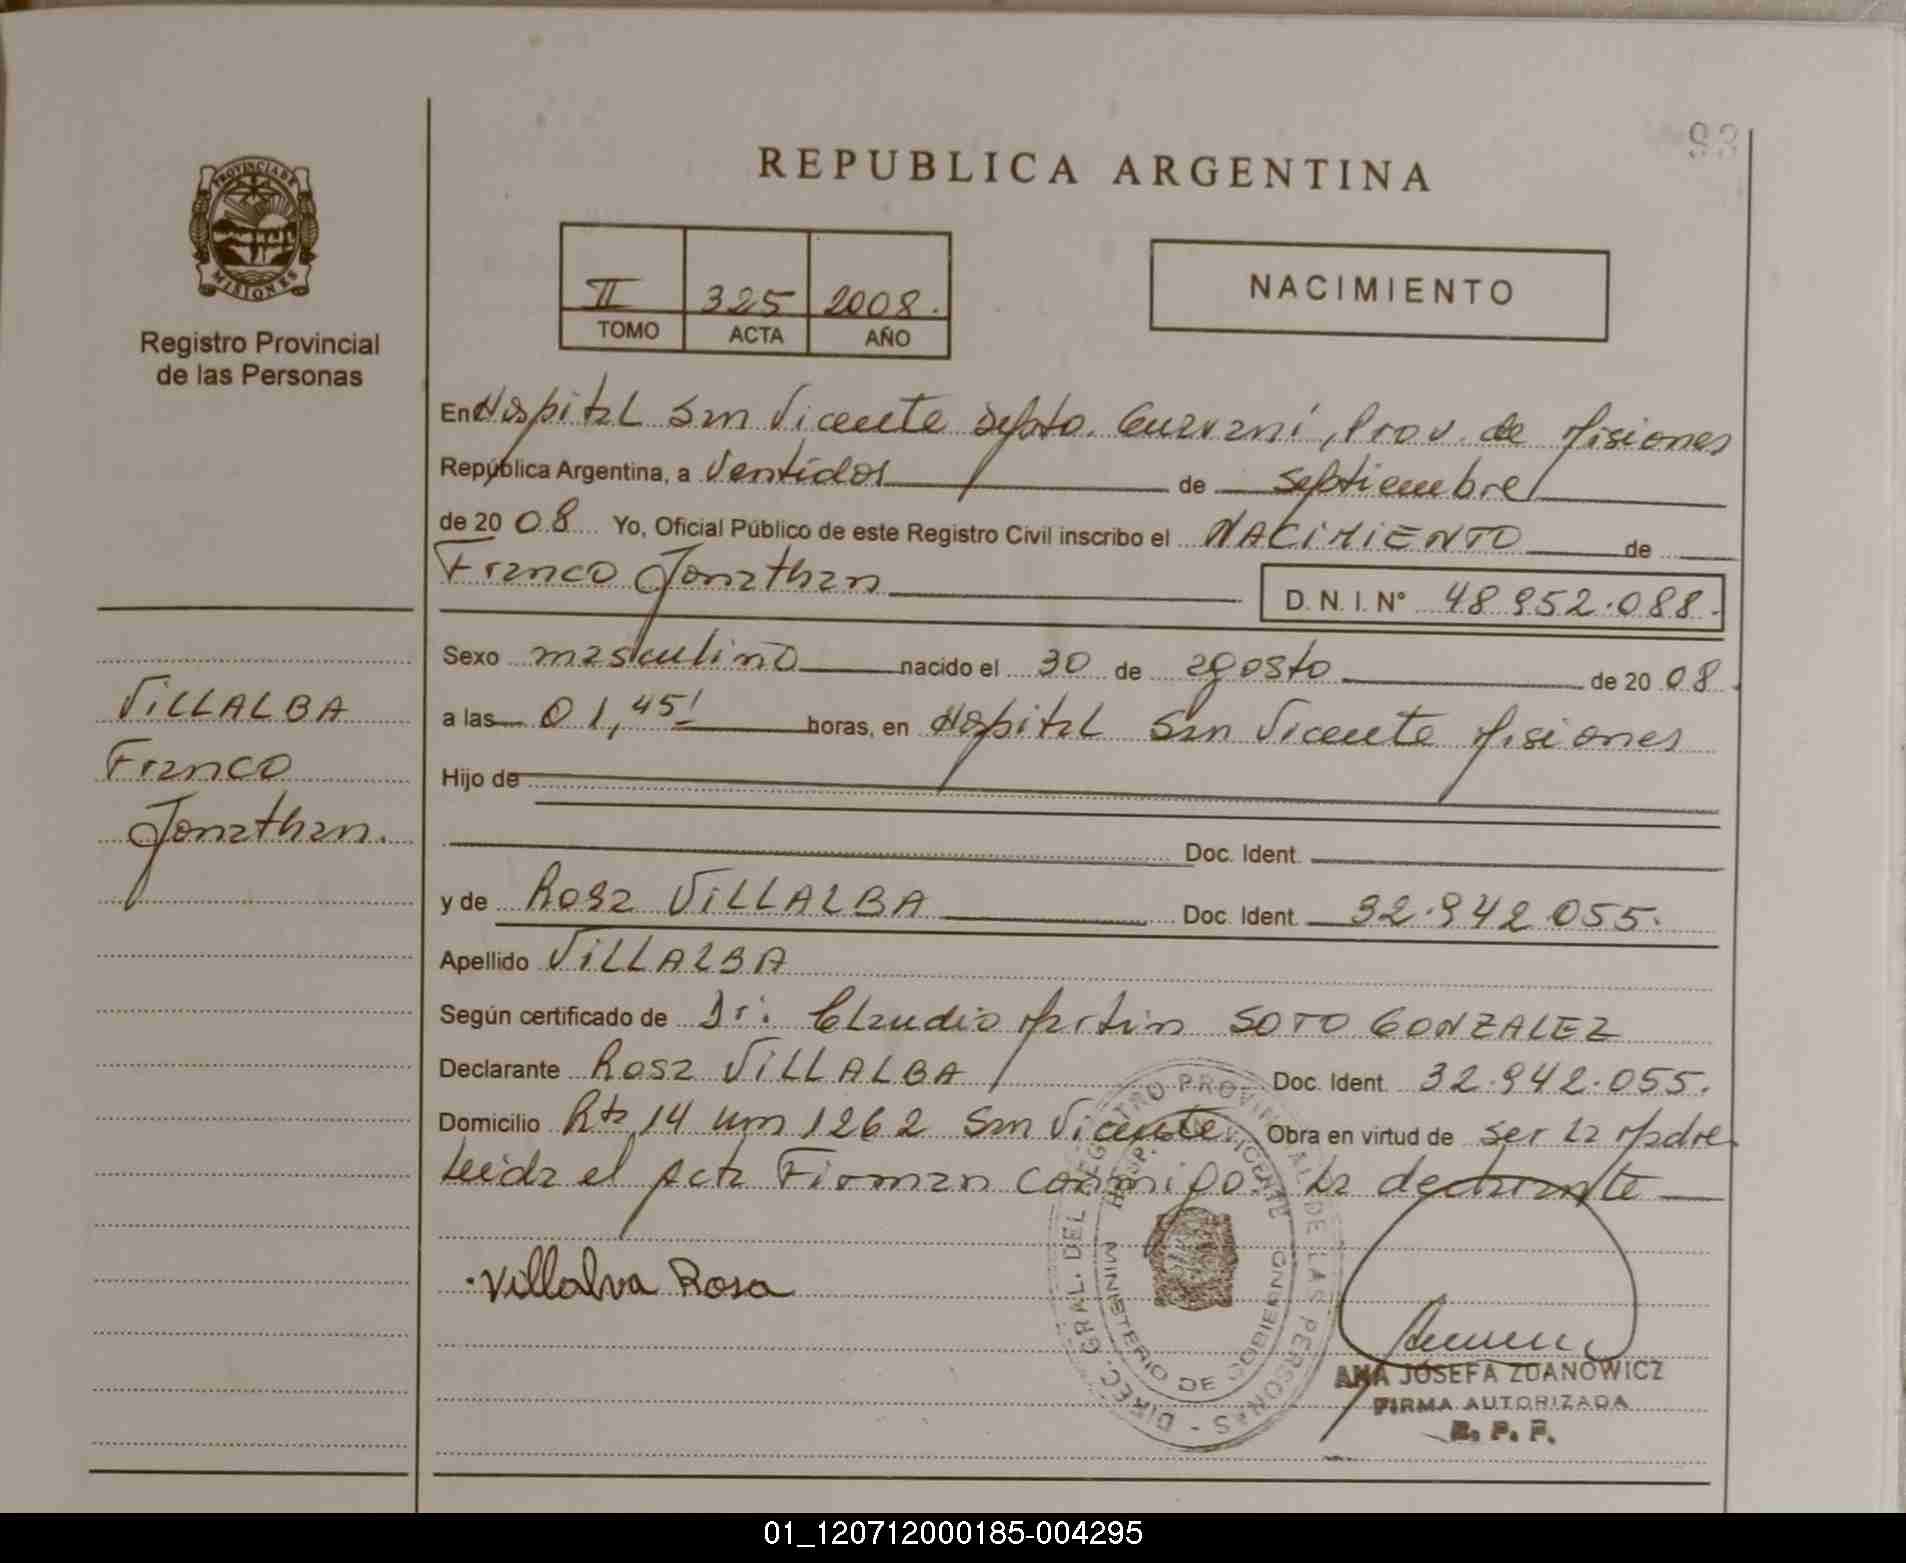 93
REPUBLICA ARGENTINA
PROVINCIA DE
MISIONES
Registro Provincial
de las Personas
II 325 2008.
TOMO ACTA AÑO
NACIMIENTO
En Hospital San Vicente Depto. Guarani, Prov. de Misiones
República Argentina, a Ventidos de Septiembre
de 20 08 Yo, Oficial Público de este Registro Civil inscribo el NACIMIENTO de
Franco Jonathan D. N. I. N° 48 952.088.
Sexo masculino nacido el 30 de agosto de 20 08.
a las 01,45' horas, en Hospital San Vicente Misiones
Hijo de
Doc. Ident.
y de Rosa VILLALBA Doc. Ident. 32.942 055.
Apellido VILLALBA
Según certificado de Dr: Claudio Martin SOTO GONZALEZ
Declarante Rosa VILLALBA Doc. Ident. 32.942.055.
Domicilio Rta 14 km 1262 San Vicente Obra en virtud de ser la Madre
Leida el Acta Firman conmigo: La declarante
VILLALBA
Franco
Jonathan.
Villalva Rosa
DIREC. GRAL. DEL REGISTRO PROVINCIAL DE LAS PERSONAS -
HOSP. VICENTE
MINISTERIO DE GOBIERNO
ANA JOSEFA ZDANOWICZ
FIRMA AUTORIZADA
R. P. P.
01_120712000185-004295